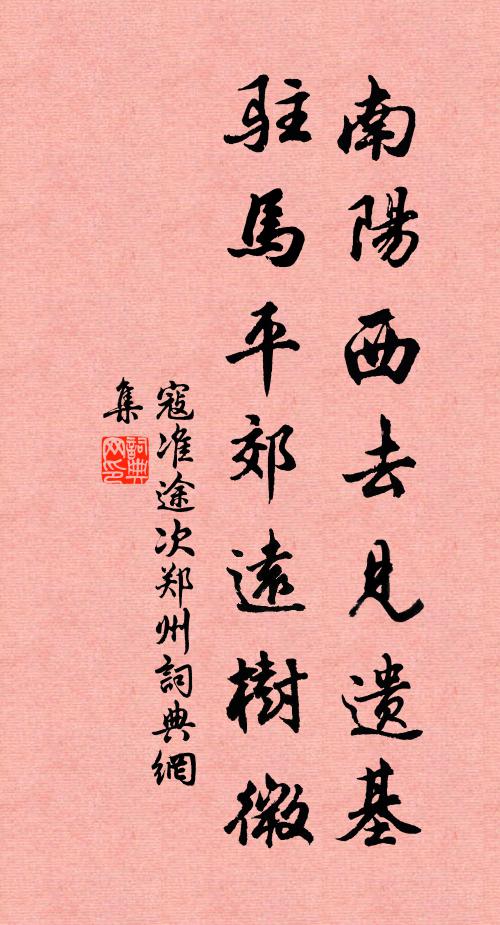 南陽西去見遗基
駐馬平郊遠樹微
寇准途次郑州詞典網
集
詞典網印